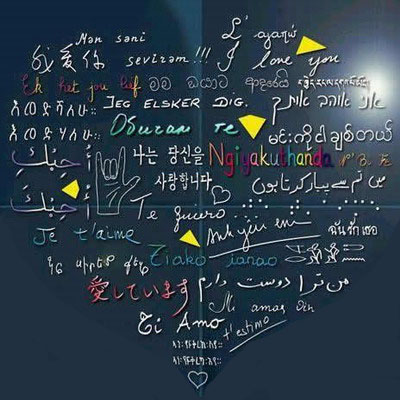 Mən səni
我爱你 sevirəm!!! I love you
Ek het jou lief මම ඔයාට ආදරෙයි
እወድሻለሁ። JEG ELSKER DIG. אני אוהב אותך
Обичам те မင်းကိုငါချစ်တယ်
أُحِبُّكِ 나는 당신을 Ngiyakuthanda
사랑합니다 میں تم سے پیار کرتا ہوں
أُحِبُّكَ Te quiero
Je t'aime ฉันรักเธอ
Tiako ianao
愛しています من ترا دوست دارم
Mi amas vin
Ti Amo t'estimo